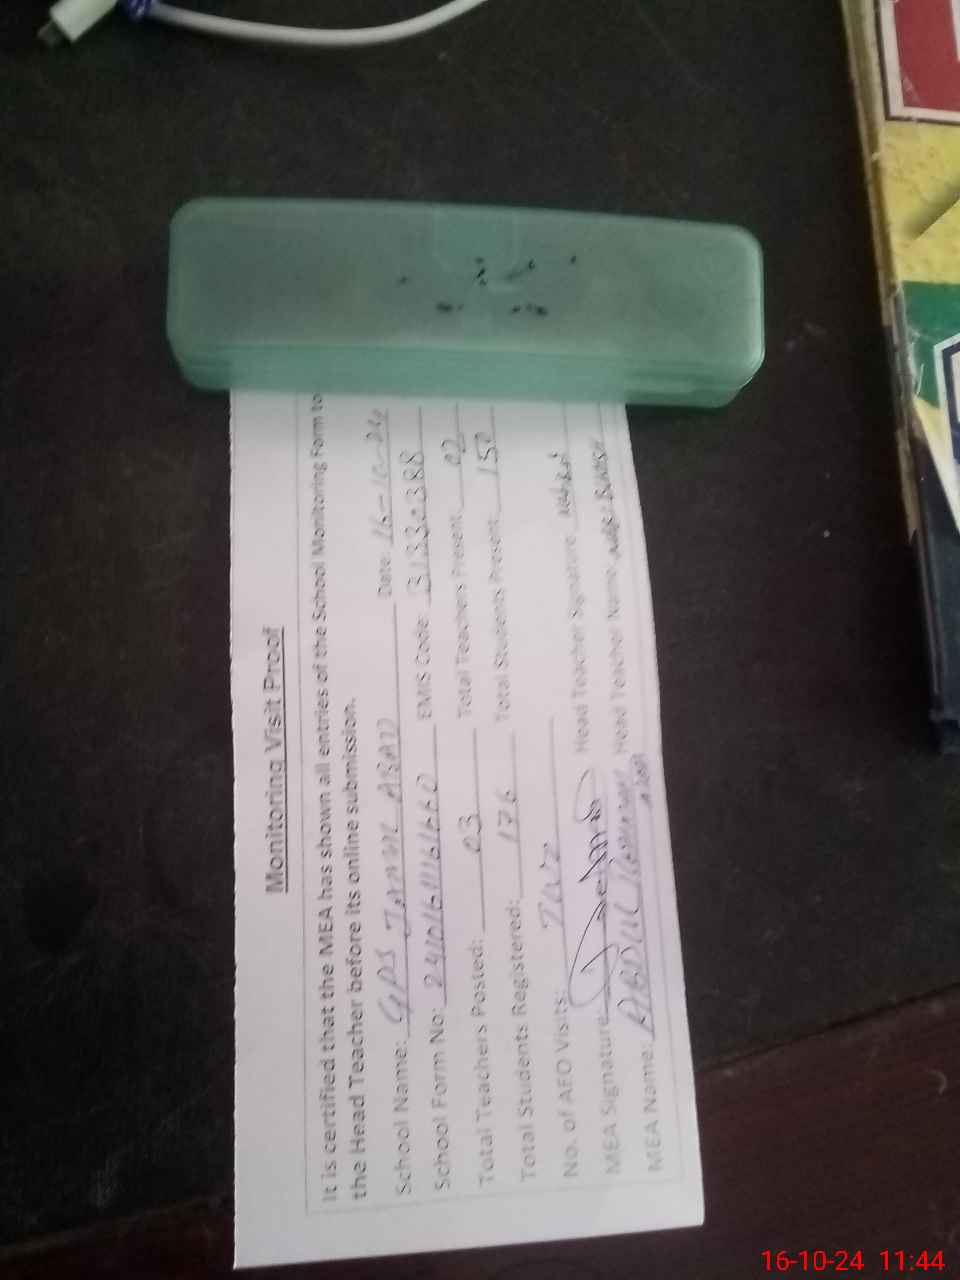 Monitoring Visit Proof
It is certified that the MEA has shown all entries of the School Monitoring Form to
the Head Teacher before its online submission.
School Name: GPS JAMAL ABAD Date: 16-10-24
School Form No: EMIS Code:
Total Teachers Posted: 03 Total Teachers Present: 02
Total Students Registered: 176 Total Students Present: 150
No. of AEO Visits:
MEA Signature: Head Teacher Signature
MEA Name: ABDUL Head Teacher Name
16-10-24 11:44